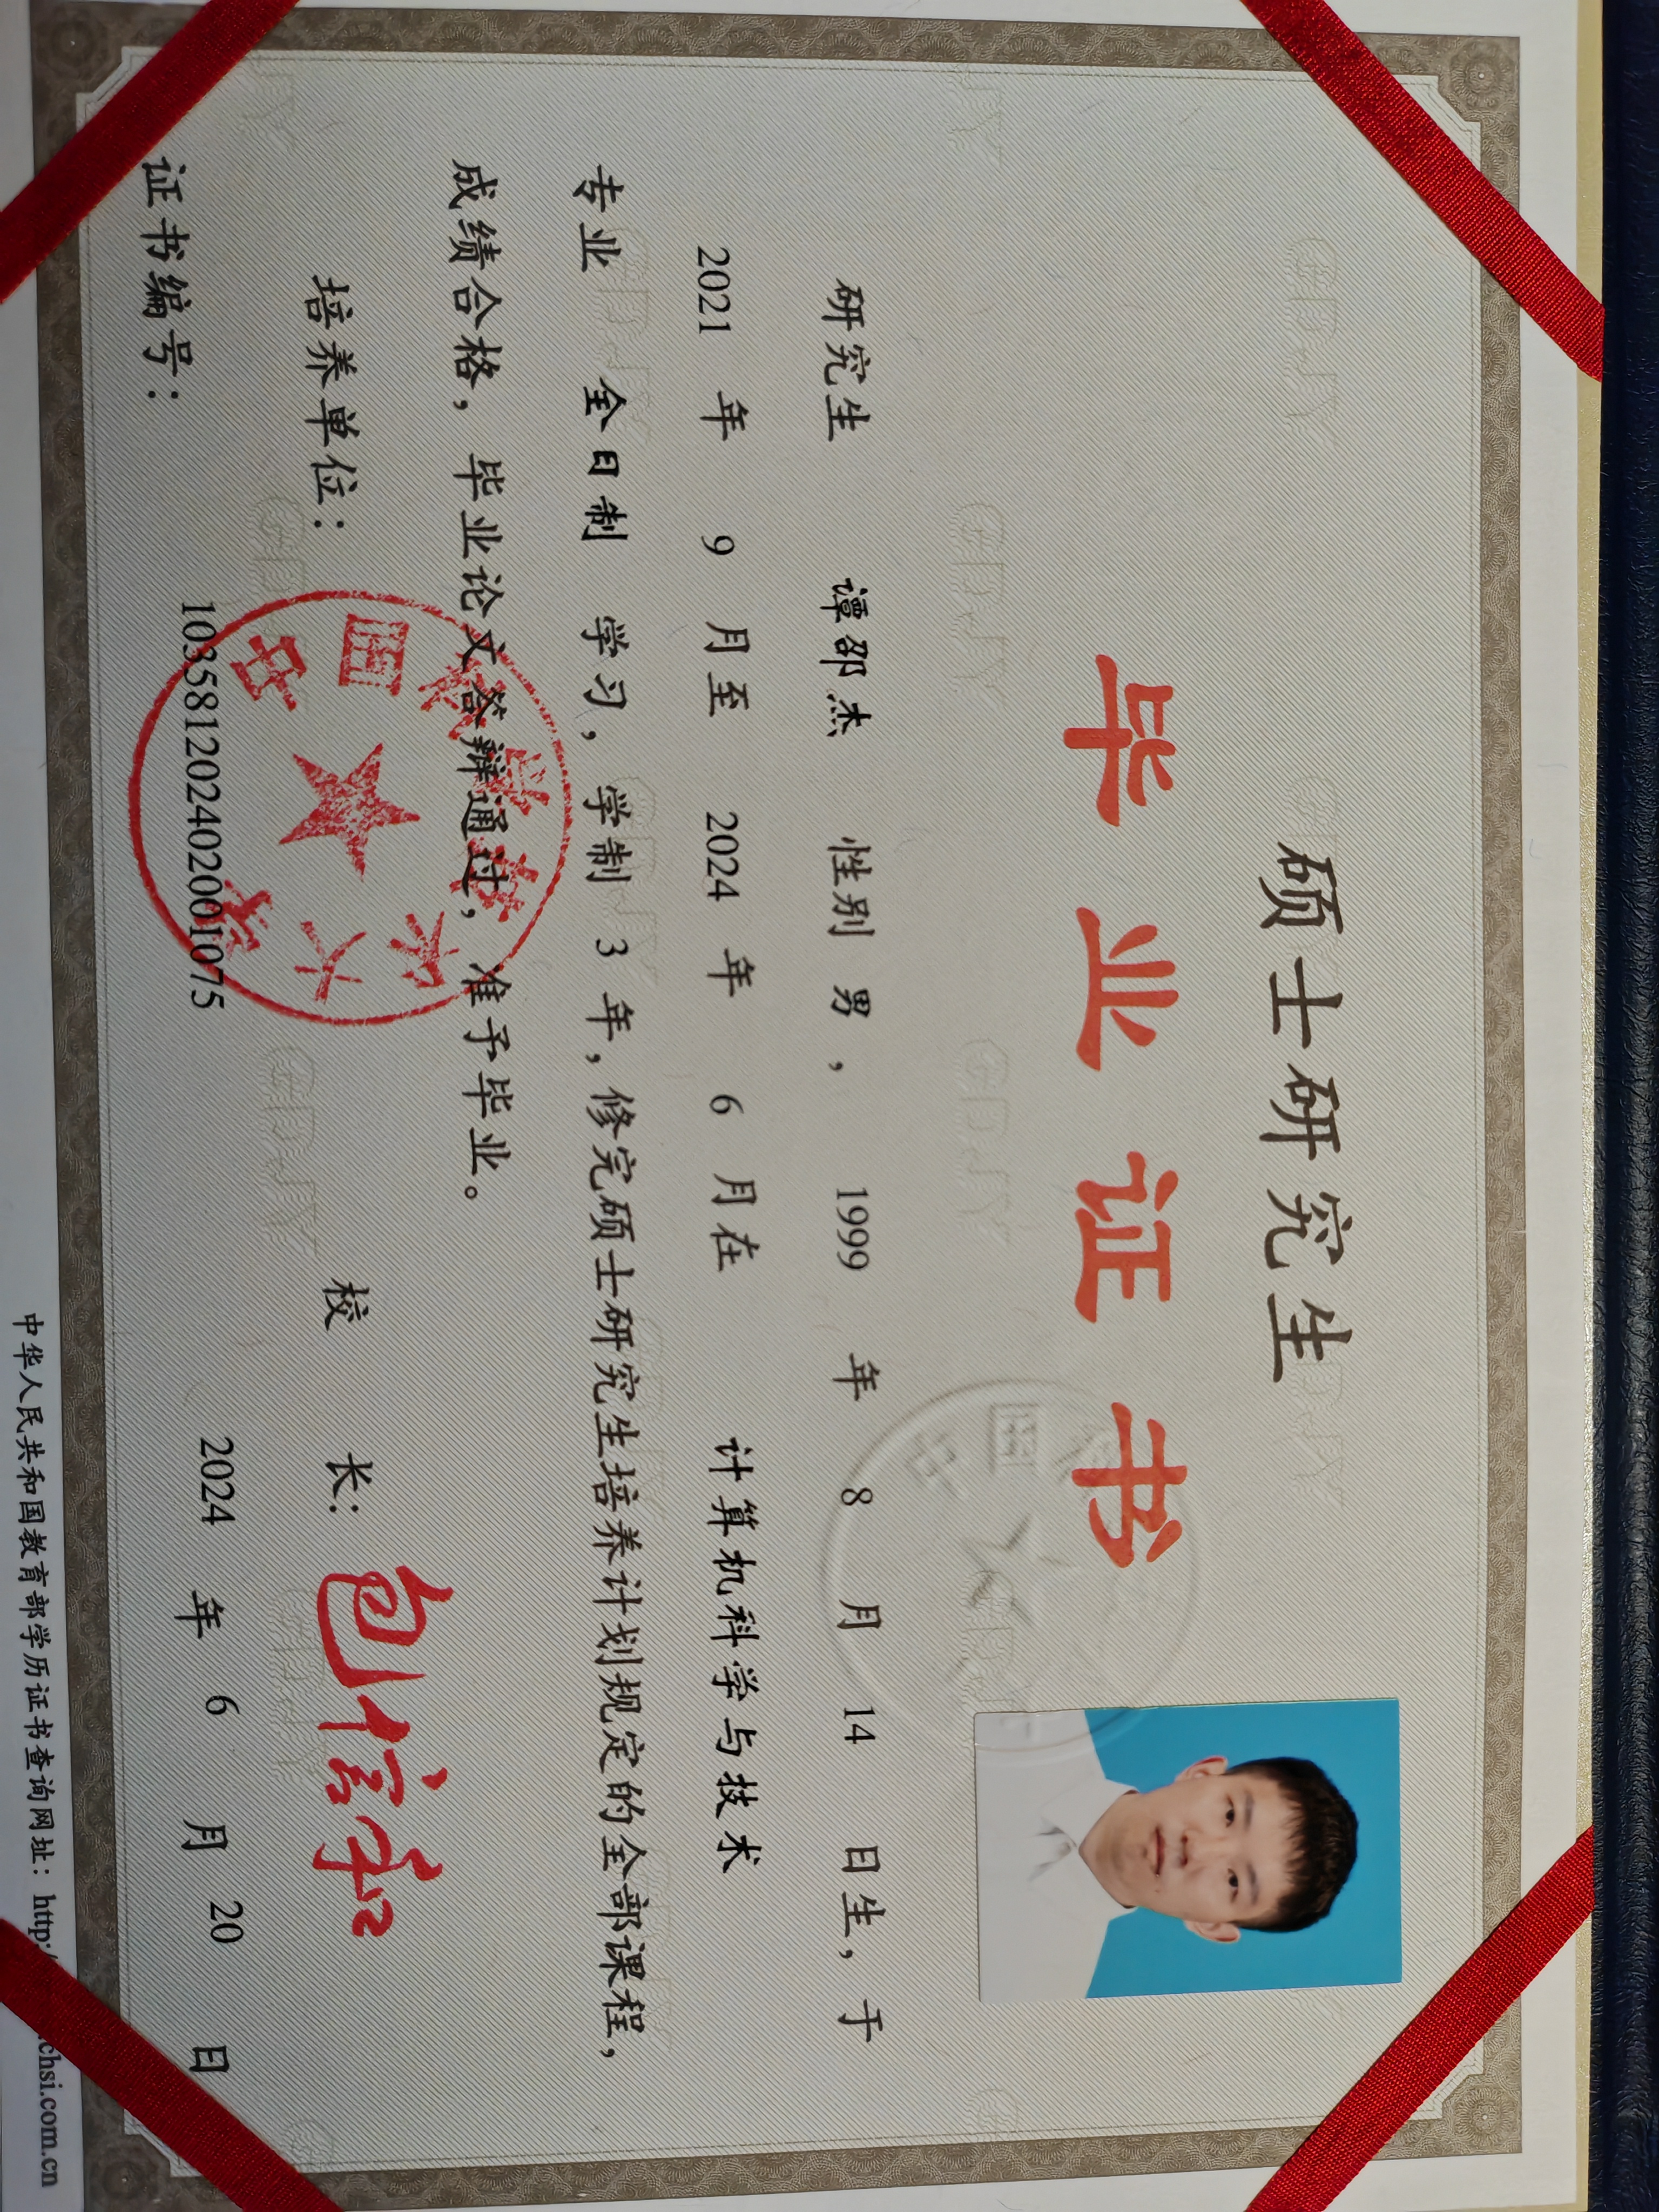 硕士研究生
毕业证书
研究生 谭邵杰 性别 男, 1999 年 8 月 14 日生, 于
2021 年 9 月至 2024 年 6 月在 计算机科学与技术
专业 全日制 学习, 学制 3 年, 修完硕士研究生培养计划规定的全部课程,
成绩合格, 毕业论文答辩通过, 准予毕业。
培养单位: 校 长: 包信和
中国科学技术大学
证书编号: 103581202402001075 2024 年 6 月 20 日
中华人民共和国教育部学历证书查询网址: http:/ .chsi.com.cn